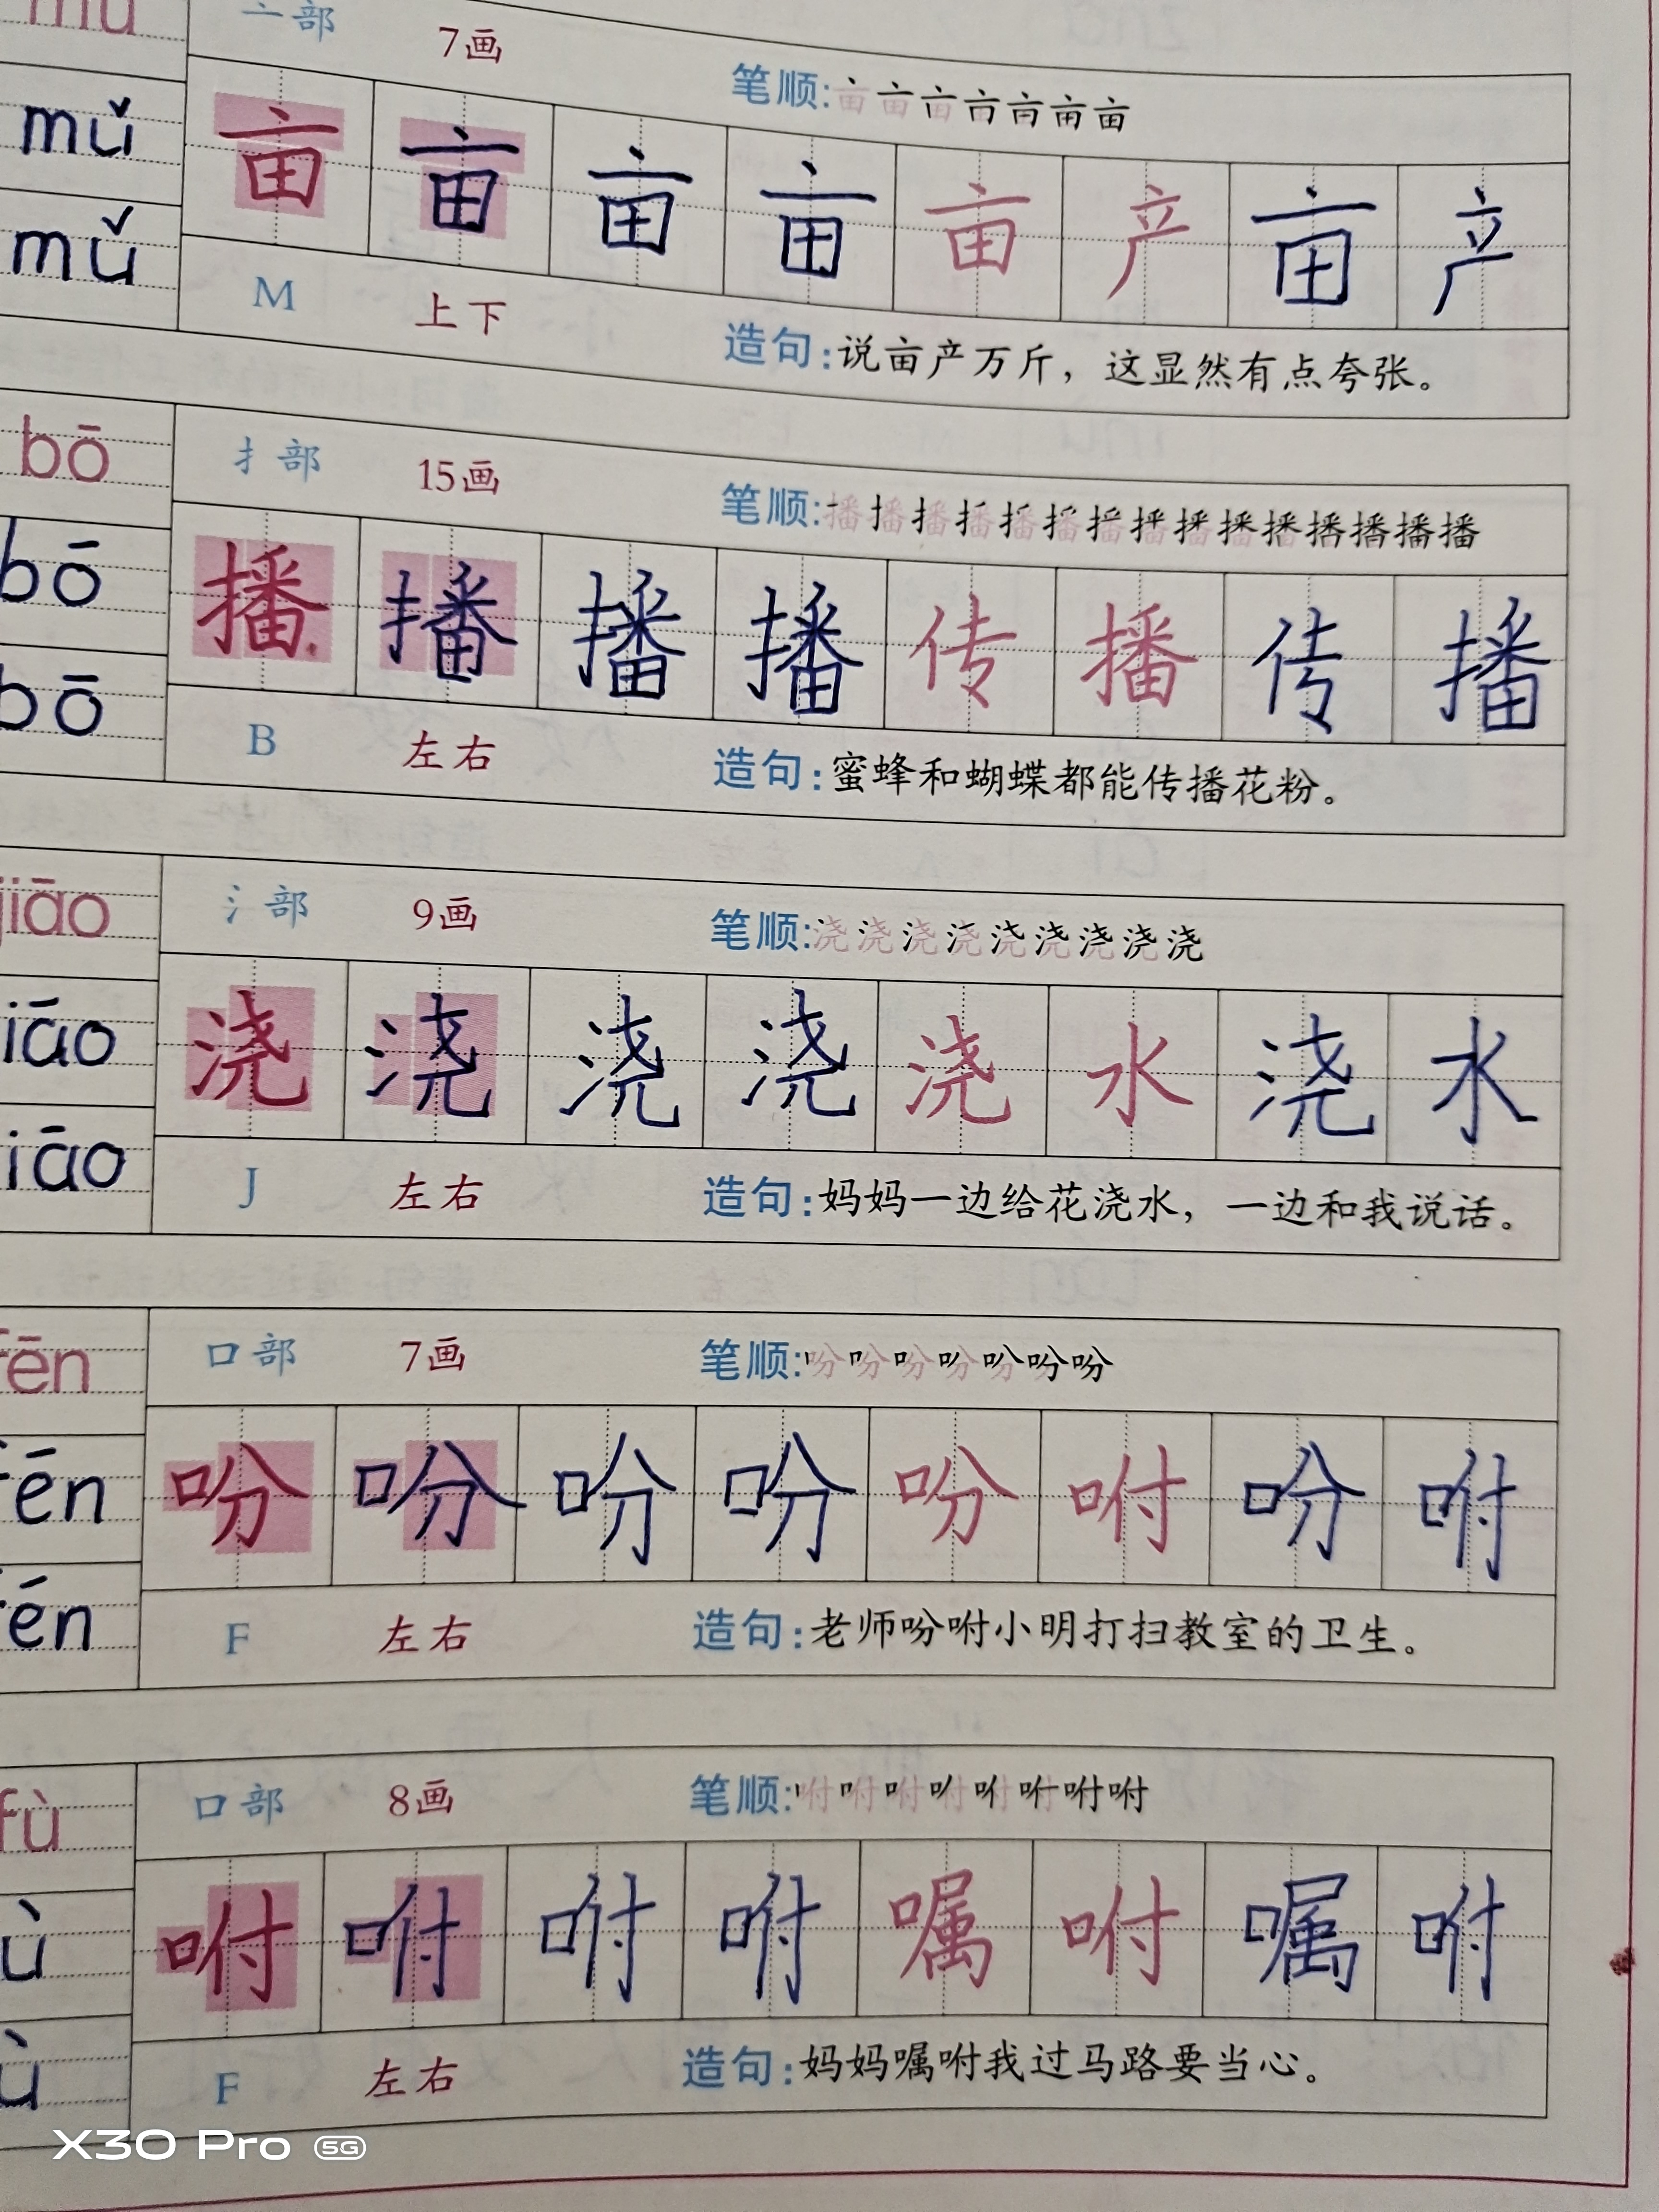 mǔ 亠部 7画 笔顺:亩亩亩亩亩亩亩
mǔ 亩 亩 亩 亩 亩 产 亩 产
mǔ
M 上下 造句:说亩产万斤，这显然有点夸张。
bō 扌部 15画 笔顺:播播播播播播播播播播播播播播播
bō 播 播 播 播 传 播 传 播
bō
B 左右 造句:蜜蜂和蝴蝶都能传播花粉。
jiāo 氵部 9画 笔顺:浇浇浇浇浇浇浇浇浇
iāo 浇 浇 浇 浇 浇 水 浇 水
iāo
J 左右 造句:妈妈一边给花浇水，一边和我说话。
fēn 口部 7画 笔顺:吩吩吩吩吩吩吩
fēn 吩 吩 吩 吩 吩 咐 吩 咐
fēn
F 左右 造句:老师吩咐小明打扫教室的卫生。
fù 口部 8画 笔顺:咐咐咐咐咐咐咐咐
ù 咐 咐 咐 咐 嘱 咐 嘱 咐
ù
F 左右 造句:妈妈嘱咐我过马路要当心。
X30 Pro 5G